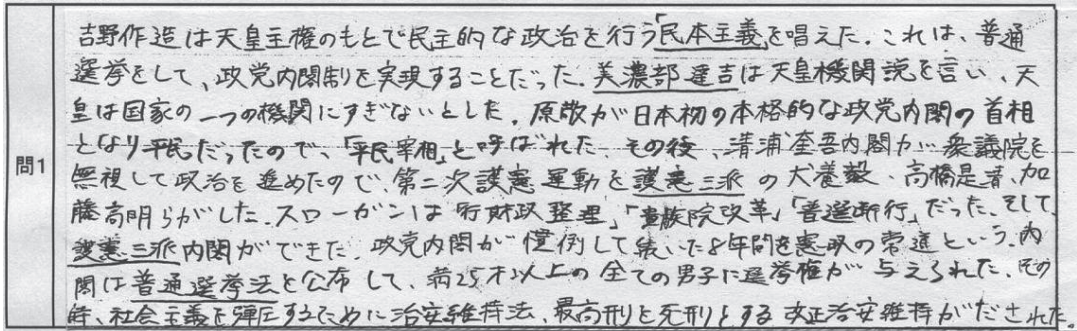 吉野作造は天皇主権のもとで民主的な政治を行う「民本主義」を唱えた。これは、普通
選挙をして、政党内閣制を実現することだった。美濃部達吉は天皇機関説を言い、天
皇は国家の一つの機関にすぎないとした。原敬が日本初の本格的な政党内閣の首相
となり平民だったので、「平民宰相」と呼ばれた。その後、清浦奎吾内閣が衆議院を
問1
無視して政治を進めたので、第二次護憲運動を護憲三派の犬養毅、高橋是清、加
藤高明らがした。スローガンは「行財政整理」「貴族院改革」「普選断行」だった。そして、
護憲三派内閣ができた。政党内閣が慣例して続いた8年間を憲政の常道という。内
閣は普通選挙法を公布して、満25才以上の全ての男子に選挙権が与えられた。その
時、社会主義を弾圧するために治安維持法、最高刑を死刑とする改正治安維持がだされた。